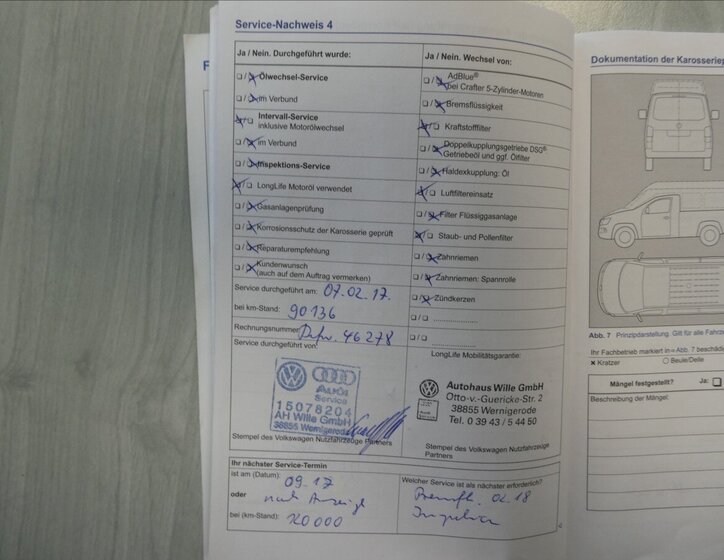 Service-Nachweis 4
Ja / Nein. Durchgeführt wurde:
Ölwechsel-Service
im Verbund
Intervall-Service
inklusive Motorölwechsel
im Verbund
Inspektions-Service
LongLife Motoröl verwendet
Gasanlagenprüfung
Korrosionsschutz der Karosserie geprüft
Reparaturempfehlung
Kundenwunsch
(auch auf dem Auftrag vermerken)
Service durchgeführt am: 07.02.17.
bei km-Stand: 90136
Rechnungsnummer: 46278
Service durchgeführt von:
Audi
Service
15078204
AH Wille GmbH
38855 Wernigerode
Stempel des Volkswagen Nutzfahrzeuge Partners
Ja / Nein. Wechsel von:
AdBlue®
bei Crafter 5-Zylinder-Motoren
Bremsflüssigkeit
Kraftstofffilter
Doppelkupplungsgetriebe DSG®
Getriebeöl und ggf. Ölfilter
Haldexkupplung: Öl
Luftfiltereinsatz
Filter Flüssiggasanlage
Staub- und Pollenfilter
Zahnriemen
Zahnriemen: Spannrolle
Zündkerzen
LongLife Mobilitätsgarantie:
Autohaus Wille GmbH
Otto-v.-Guericke-Str. 2
38855 Wernigerode
Tel. 0 39 43 / 5 44 50
Stempel des Volkswagen Nutzfahrzeuge
Partners
Ihr nächster Service-Termin
ist am (Datum): 09.17
oder nach Anzeige
bei (km-Stand): 120000
Welcher Service ist als nächster erforderlich?
Bremsfl. 02.18
Inspektion
Dokumentation der Karosseriep
Abb. 7 Prinzipdarstellung. Gilt für alle Fahrz
Ihr Fachbetrieb markiert in ⇒ Abb. 7 beschädi
× Kratzer ○ Beule/Delle
Mängel festgestellt? Ja:
Beschreibung der Mängel: